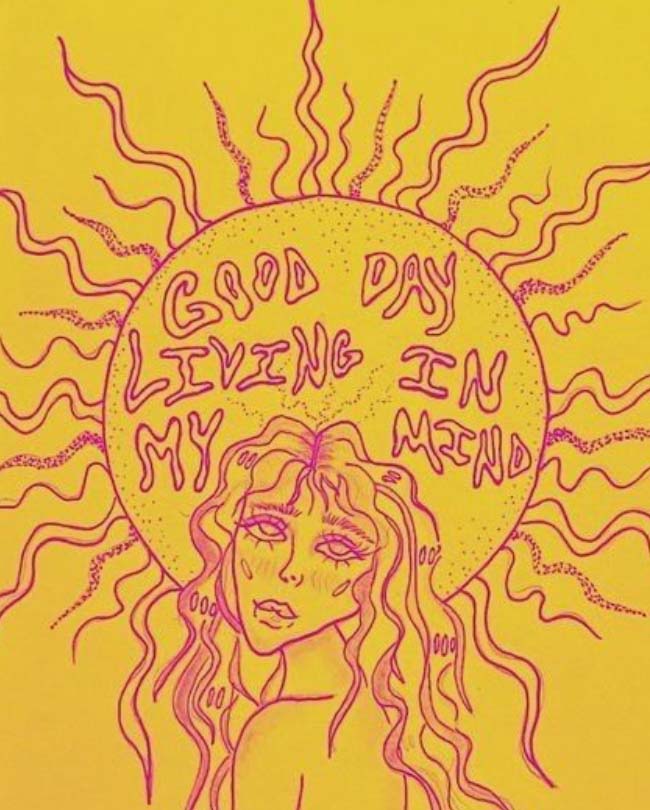 GOOD DAY
LIVING IN
MY MIND